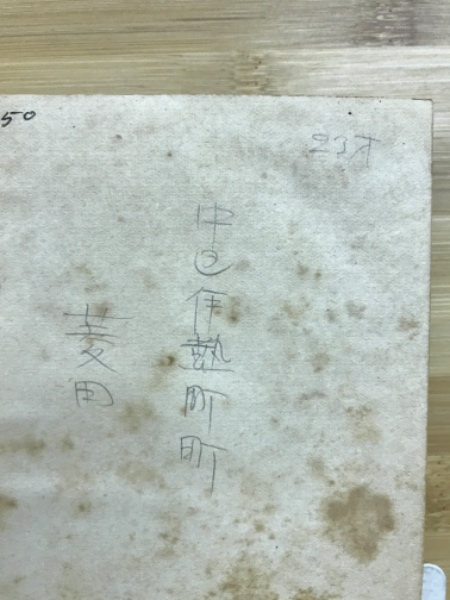 50
23才
中区伊勢町町
菱田